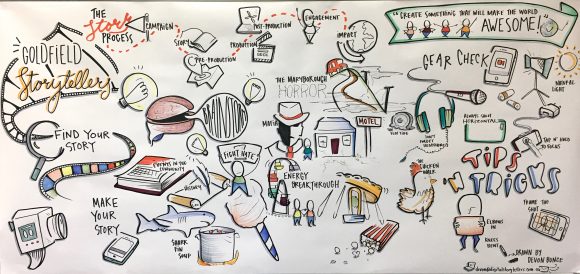 THE
Story
PROCESS
CAMPAIGN
STORY
PRE-PRODUCTION
PRODUCTION
POST-PRODUCTION
ENGAGEMENT
IMPACT
"CREATE SOMETHING THAT WILL MAKE THE WORLD
AWESOME!"
GOLDFIELD
Storytellers
FIND YOUR
STORY
MAIN STORY
THE MARYBOROUGH
HORROR
MAFIA
MOTEL
GEAR CHECK
NATURAL
LIGHT
ALWAYS SHOOT
HORIZONTAL
TAP N' HOLD
TO FOCUS
TIPS
N
TRICKS
EVENTS IN THE
COMMUNITY
HISTORY
FIGHT HATE
ENERGY
BREAKTHROUGH
THE
CHICKEN
WALK
MAKE
YOUR
STORY
SHARK
FIN
SOUP
FRAME THE
SHOT
ELBOWS
IN
KNEES
BENT
DRAWN BY
DEVON BUNCE